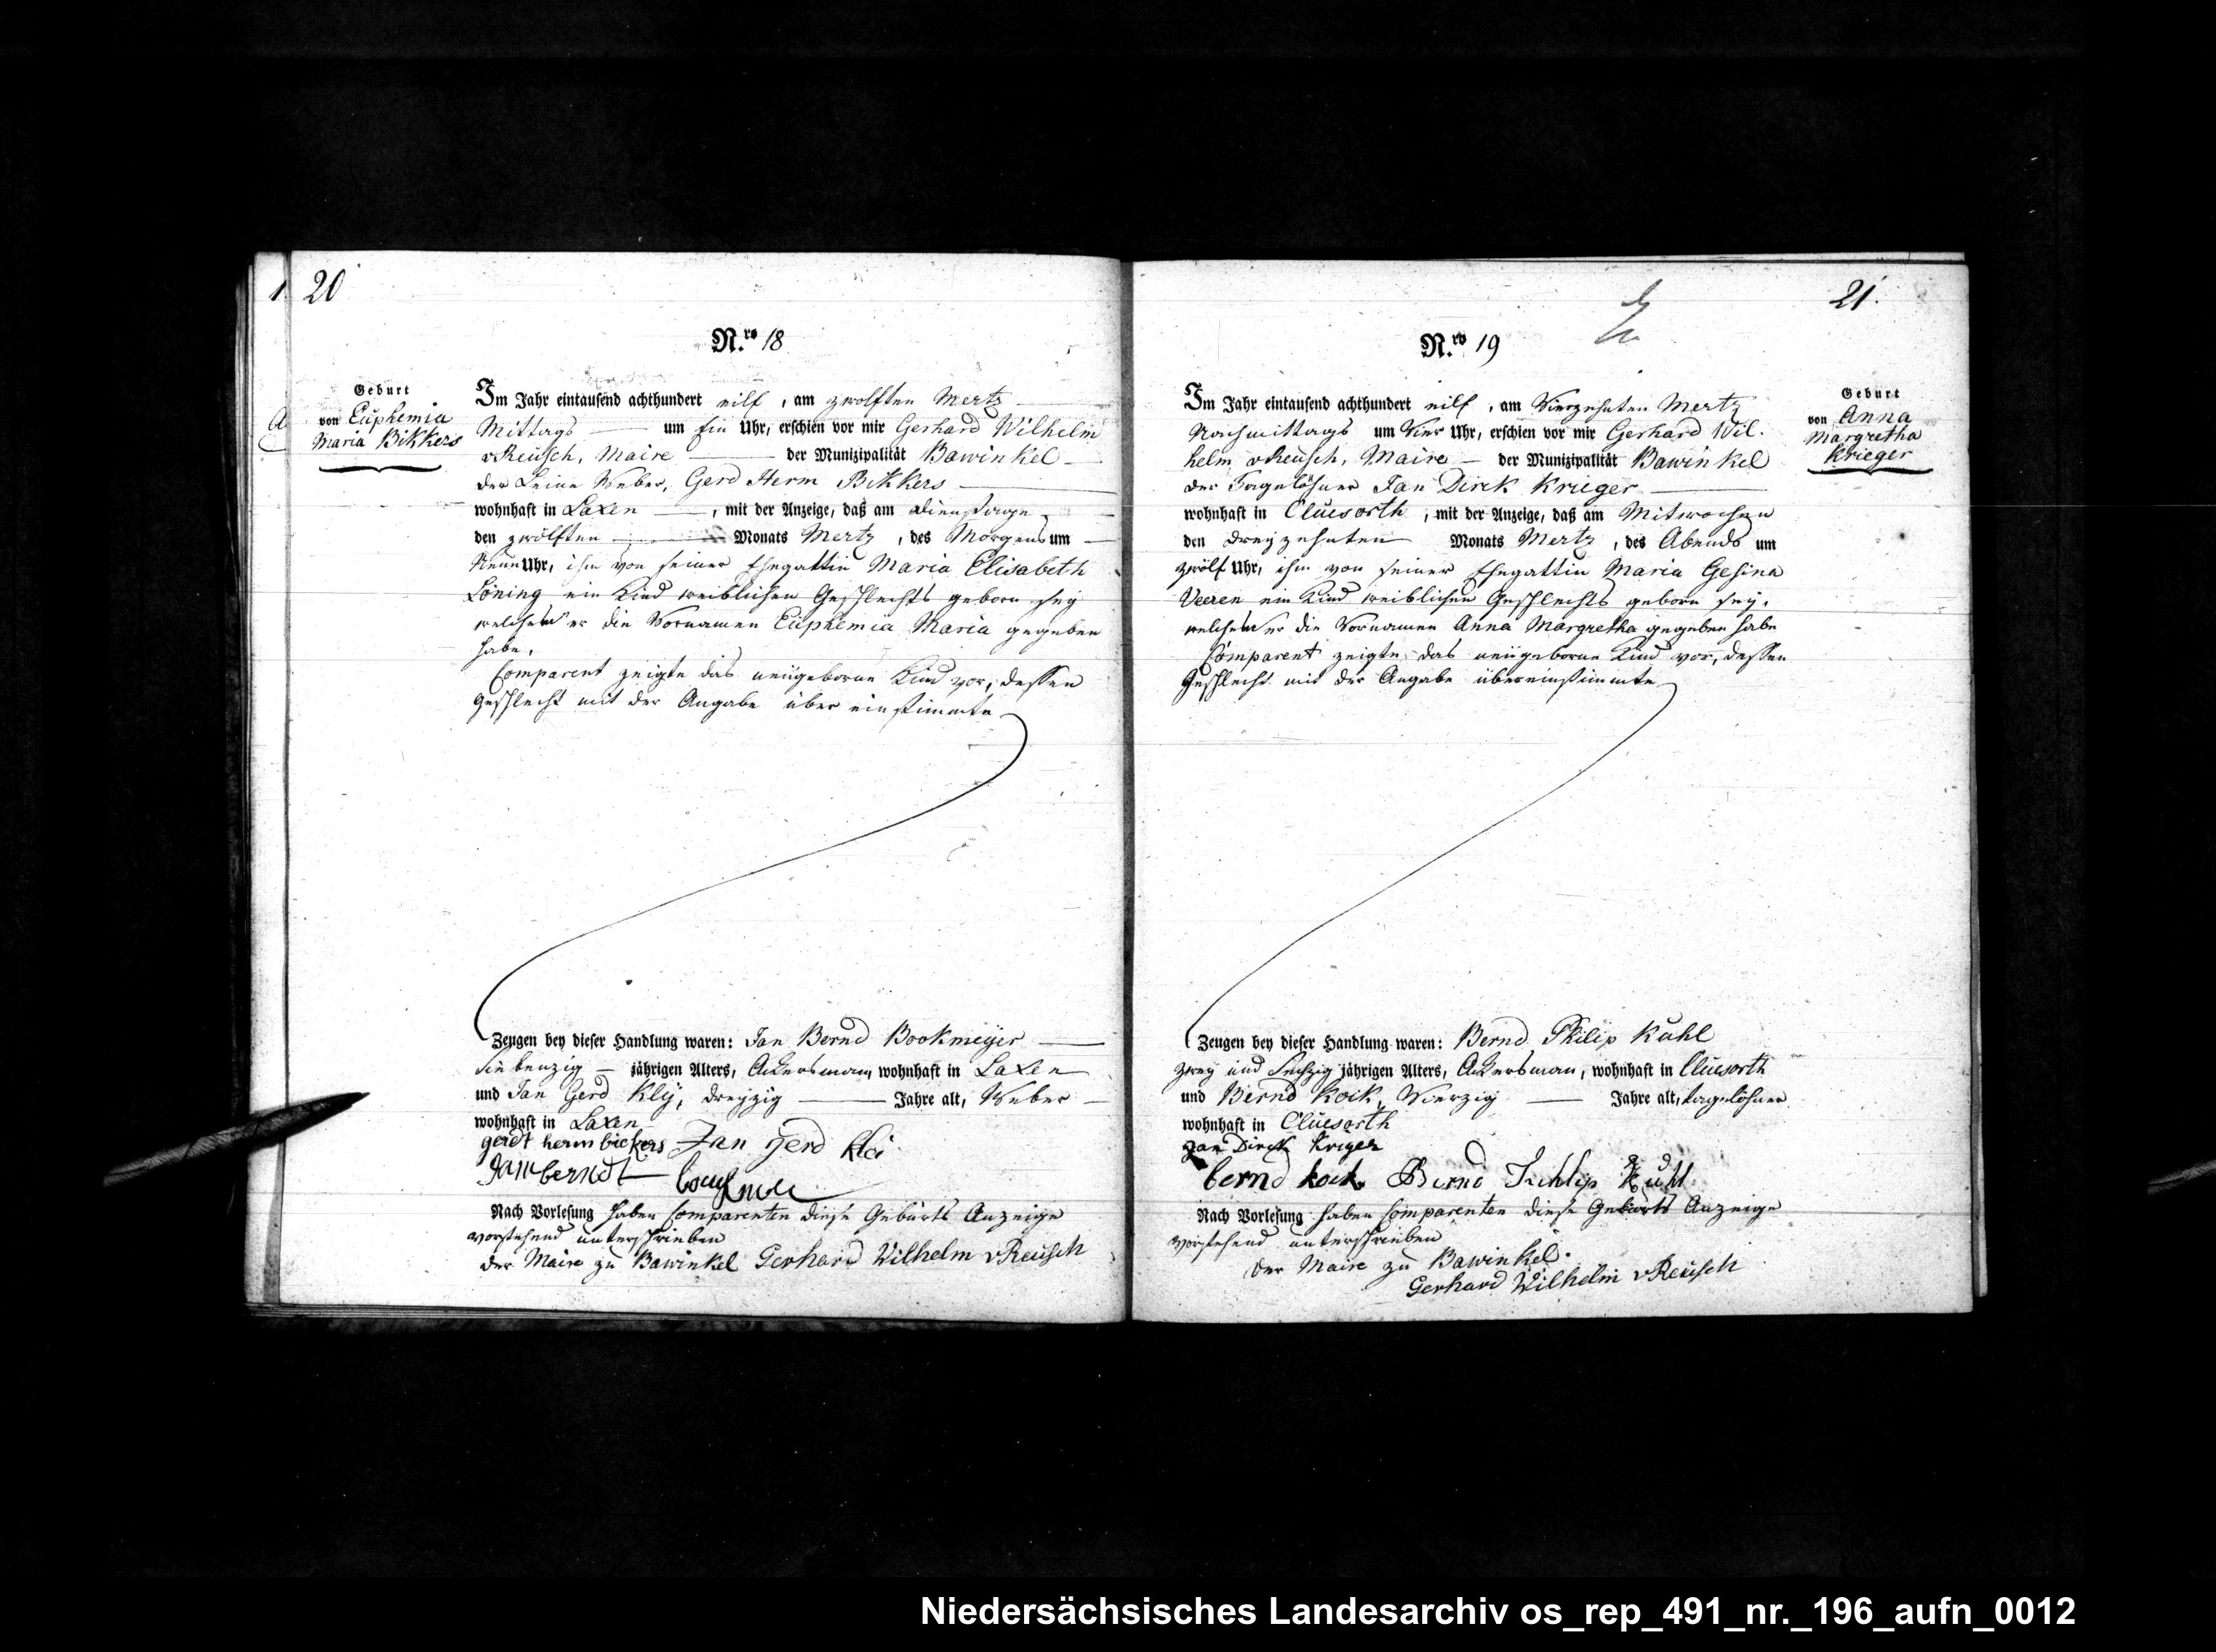 20
N.ro 18
Geburt
von Euphemia
Maria Bikkers
Im Jahr eintausend achthundert eilf, am zwolften Mertz
Mittags um Ein Uhr, erschien vor mir Gerhard Wilhelm
vReusch, Maire der Munizipalität Bawinkel
der Leine Weber, Gerd Herm Bikkers
wohnhaft in Laxen, mit der Anzeige, daß am Dienstage
den zwölften Monats Mertz, des Morgens um
Neun Uhr, ihm von seiner Ehegattin Maria Elisabeth
Löning ein Kind weiblichen Geschlechts geboren sey
welchem er die Vornamen Euphemia Maria gegeben
habe.
Comparent zeigte das neugeborne Kind vor, dessen
Geschlecht mit der Angabe über einstimmte
Zeugen bey dieser Handlung waren: Jan Bernd Bookmeyer
Siebenzig jährigen Alters, Ackersman, wohnhaft in Laxen
und Jan Gerd Kly, dreyzig Jahre alt, Weber
wohnhaft in Laxen
gerdt herm bickers Jan gerd klei
Jan berndt
Nach Vorlesung haben Comparenten diese Geburts Anzeige
vorstehend unterschrieben
der Maire zu Bawinkel Gerhard Wilhelm vReusch
21.
N.ro 19
Geburt
von Anna
Margretha
Krieger
Im Jahr eintausend achthundert eilf, am Vierzehnten Mertz
Nachmittags um Vier Uhr, erschien vor mir Gerhard Wil.
helm vReusch, Maire der Munizipalität Bawinkel
der Tagelöhner Jan Dirck Krieger
wohnhaft in Cluesorth, mit der Anzeige, daß am Mitwochen
den dreyzehnten Monats Mertz, des Abends um
zwölf Uhr, ihm von seiner Ehegattin Maria Gesina
Veeren ein Kind weiblichen Geschlechts geboren sey,
welchem er die Vornamen Anna Margretha gegeben habe
Comparent zeigte das neugeborne Kind vor, dessen
Geschlecht mit der Angabe übereinstimmte
Zeugen bey dieser Handlung waren: Bernd Philip Kuhl
zwey und Sechzig jährigen Alters, Ackersman, wohnhaft in Cluesorth
und Bernd Koik, Vierzig Jahre alt, tagelöhner
wohnhaft in Cluesorth
Jan Dirck Kriger
bernd koik Bernd Kuhl
Nach Vorlesung haben Comparenten diese Geburts Anzeige
vorstehend unterschrieben
der Maire zu Bawinkel.
Gerhard Wilhelm vReusch
Niedersächsisches Landesarchiv os_rep_491_nr._196_aufn_0012